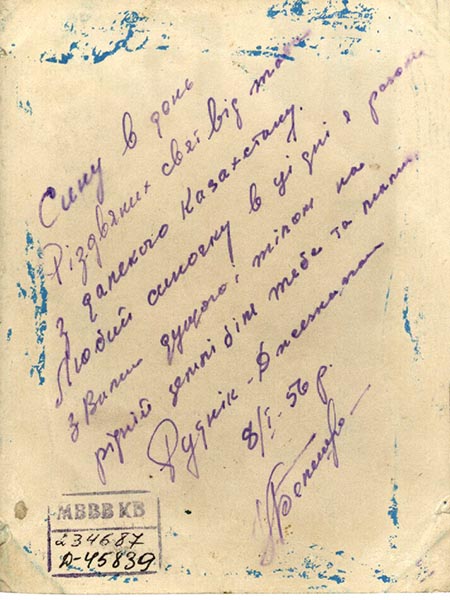 Сину в день
Різдвяних свят від тата
з далекого Казахстану.
Любий синочку в ці дні я разом
з Вами душою, тілом на
рідній землі біля тебе та мами
Руднік-Джезказган
8/I. 56 р.
МВВВ КВ
234687
Д-45839